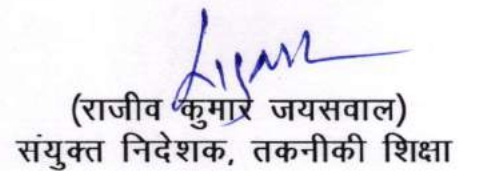 (राजीव कुमार जयसवाल)
संयुक्त निदेशक, तकनीकी शिक्षा